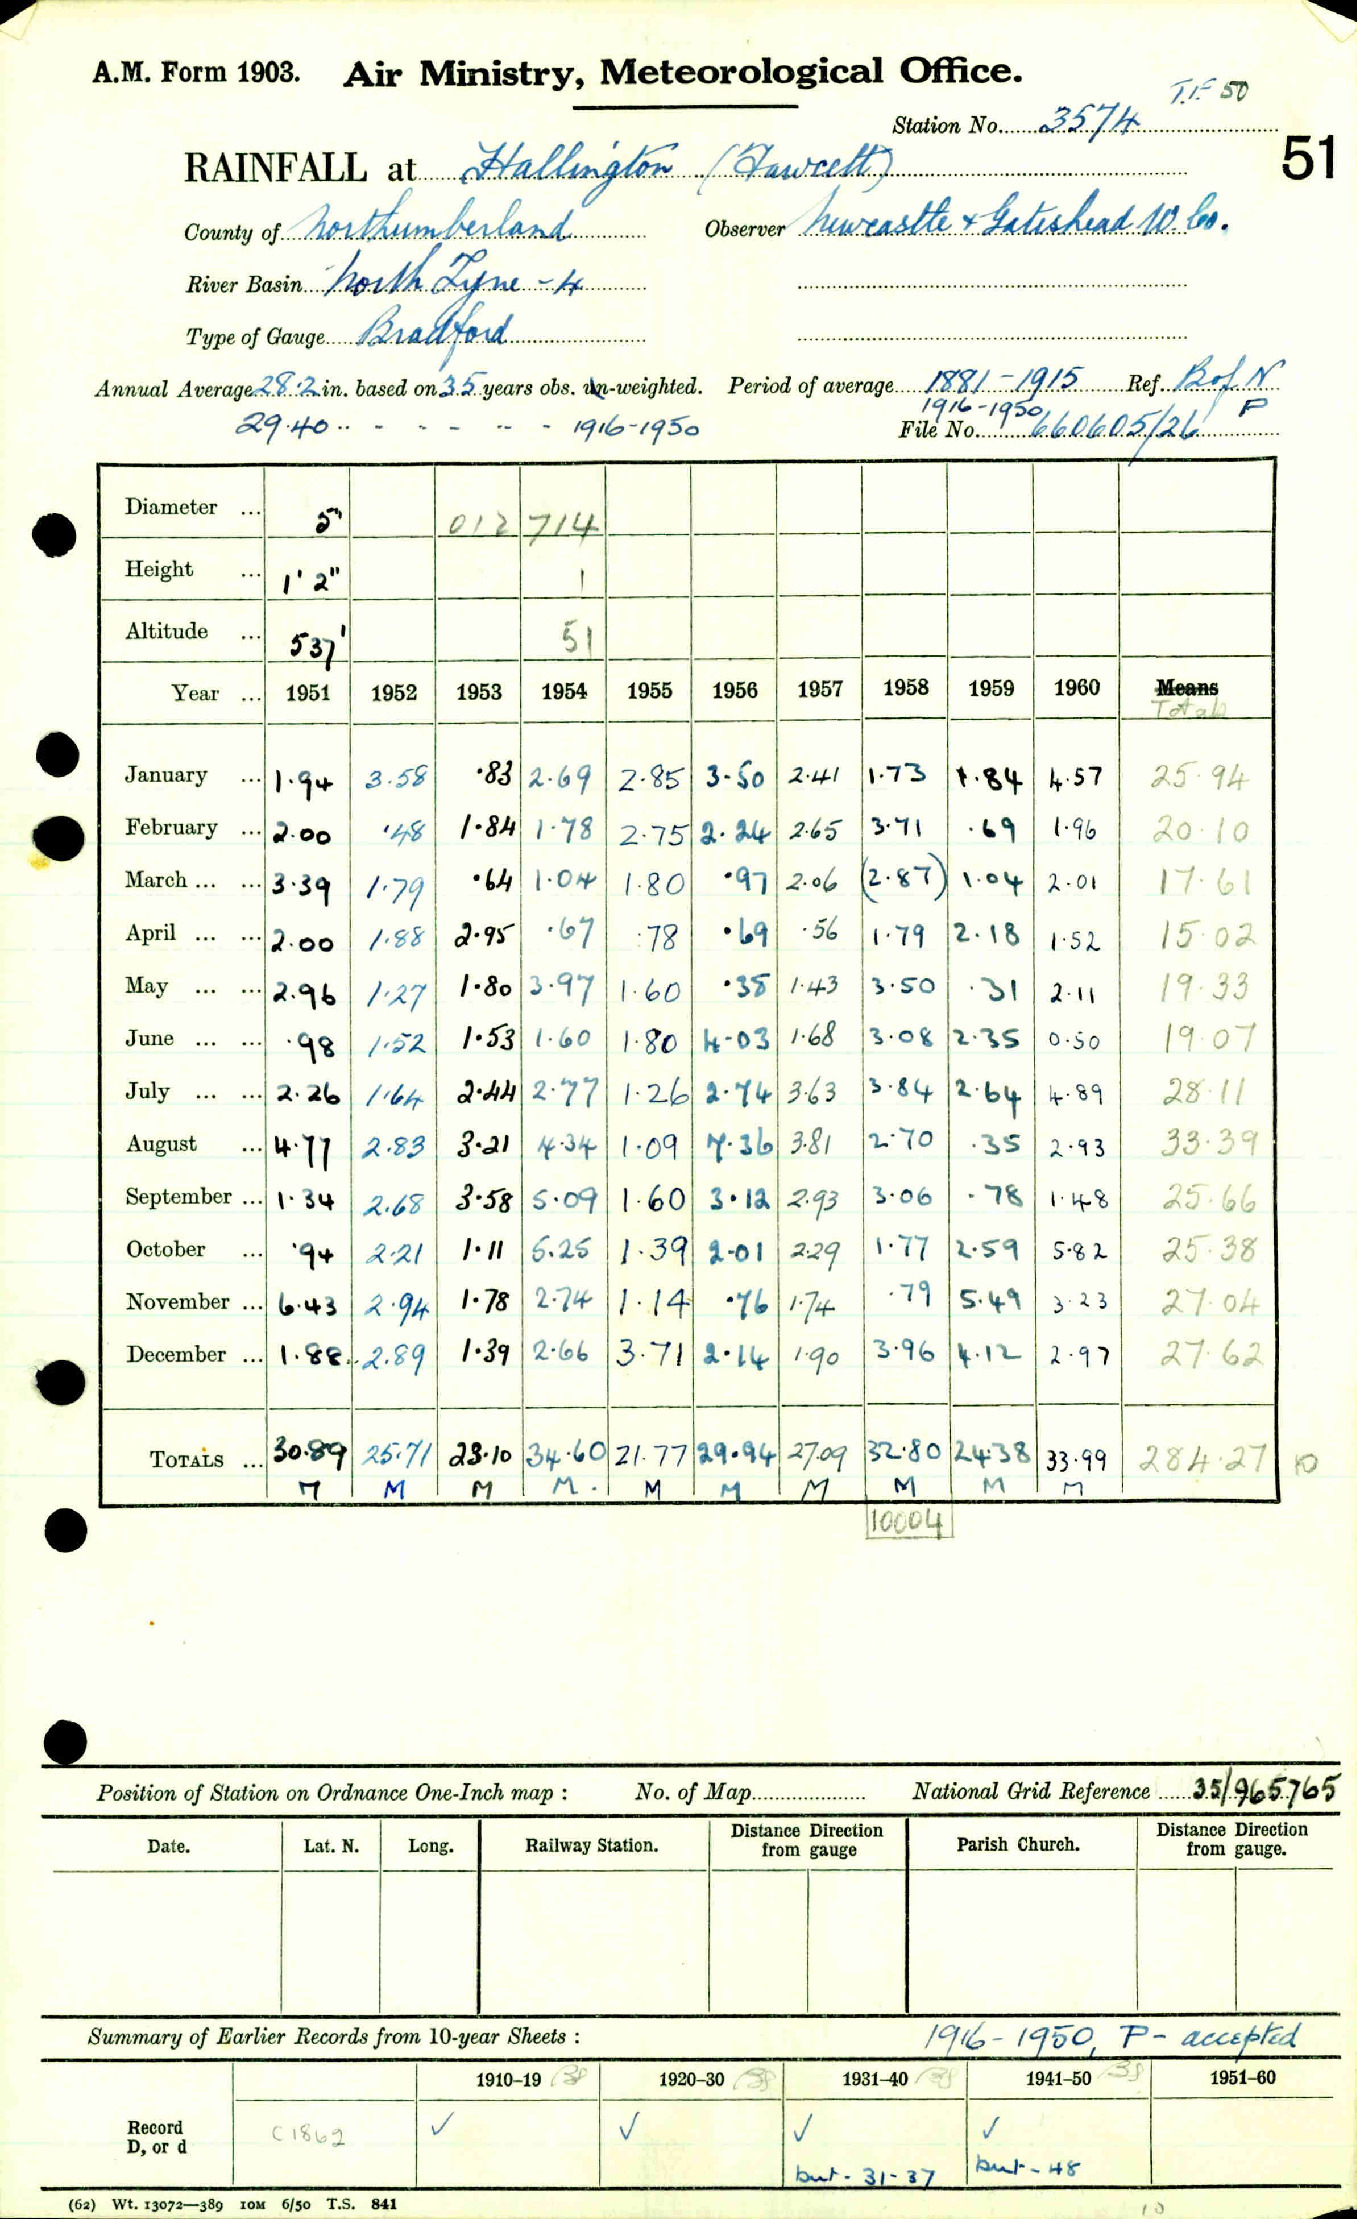 A.M. Form 1903. Air Ministry, Meteorological Office.
T.F 50
Station No. 3574
51
RAINFALL at Hallington (Fawcett)
County of Northumberland Observer Newcastle & Gateshead W. Co.
River Basin North Tyne - 4
Type of Gauge Bradford
Annual Average 28.2 in. based on 35 years obs. un-weighted. Period of average 1881-1915 Ref. B of N
1916-1950 P
29.40 .. - - - .. - 1916-1950 File No. 660605/26
Diameter ... 5" 012 714
Height ... 1' 2" 1
Altitude ... 537' 51
Year ... 1951 1952 1953 1954 1955 1956 1957 1958 1959 1960 Means
Totals
January ... 1.94 3.58 .83 2.69 2.85 3.50 2.41 1.73 1.84 4.57 25.94
February ... 2.00 .48 1.84 1.78 2.75 2.24 2.65 3.71 .69 1.96 20.10
March ... ... 3.39 1.79 .64 1.04 1.80 .97 2.06 (2.87) 1.04 2.01 17.61
April ... ... 2.00 1.88 2.95 .67 .78 .69 .56 1.79 2.18 1.52 15.02
May ... ... 2.96 1.27 1.80 3.97 1.60 .38 1.43 3.50 .31 2.11 19.33
June ... ... .98 1.52 1.53 1.60 1.80 4.03 1.68 3.08 2.35 0.50 19.07
July ... ... 2.26 1.64 2.44 2.77 1.26 2.74 3.63 3.84 2.64 4.89 28.11
August ... 4.77 2.83 3.21 4.34 1.09 7.36 3.81 2.70 .35 2.93 33.39
September ... 1.34 2.68 3.58 5.09 1.60 3.12 2.93 3.06 .78 1.48 25.66
October ... .94 2.21 1.11 5.25 1.39 2.01 2.29 1.77 2.59 5.82 25.38
November ... 6.43 2.94 1.78 2.74 1.14 .76 1.74 .79 5.49 3.23 27.04
December ... 1.88 2.89 1.39 2.66 3.71 2.14 1.90 3.96 4.12 2.97 27.62
TOTALS ... 30.89 25.71 23.10 34.60 21.77 29.94 27.09 32.80 24.38 33.99 284.27 10
M M M M. M M M M M M
10004
Position of Station on Ordnance One-Inch map : No. of Map National Grid Reference 35/965765
Date. Lat. N. Long. Railway Station. Distance Direction from gauge Parish Church. Distance Direction from gauge.
Summary of Earlier Records from 10-year Sheets : 1916-1950, P - accepted
1910-19 1920-30 1931-40 1941-50 1951-60
Record D, or d C1862 ✓ ✓ ✓ ✓
but - 31-37 but - 48
(62) Wt. 13072—389 10M 6/50 T.S. 841
10